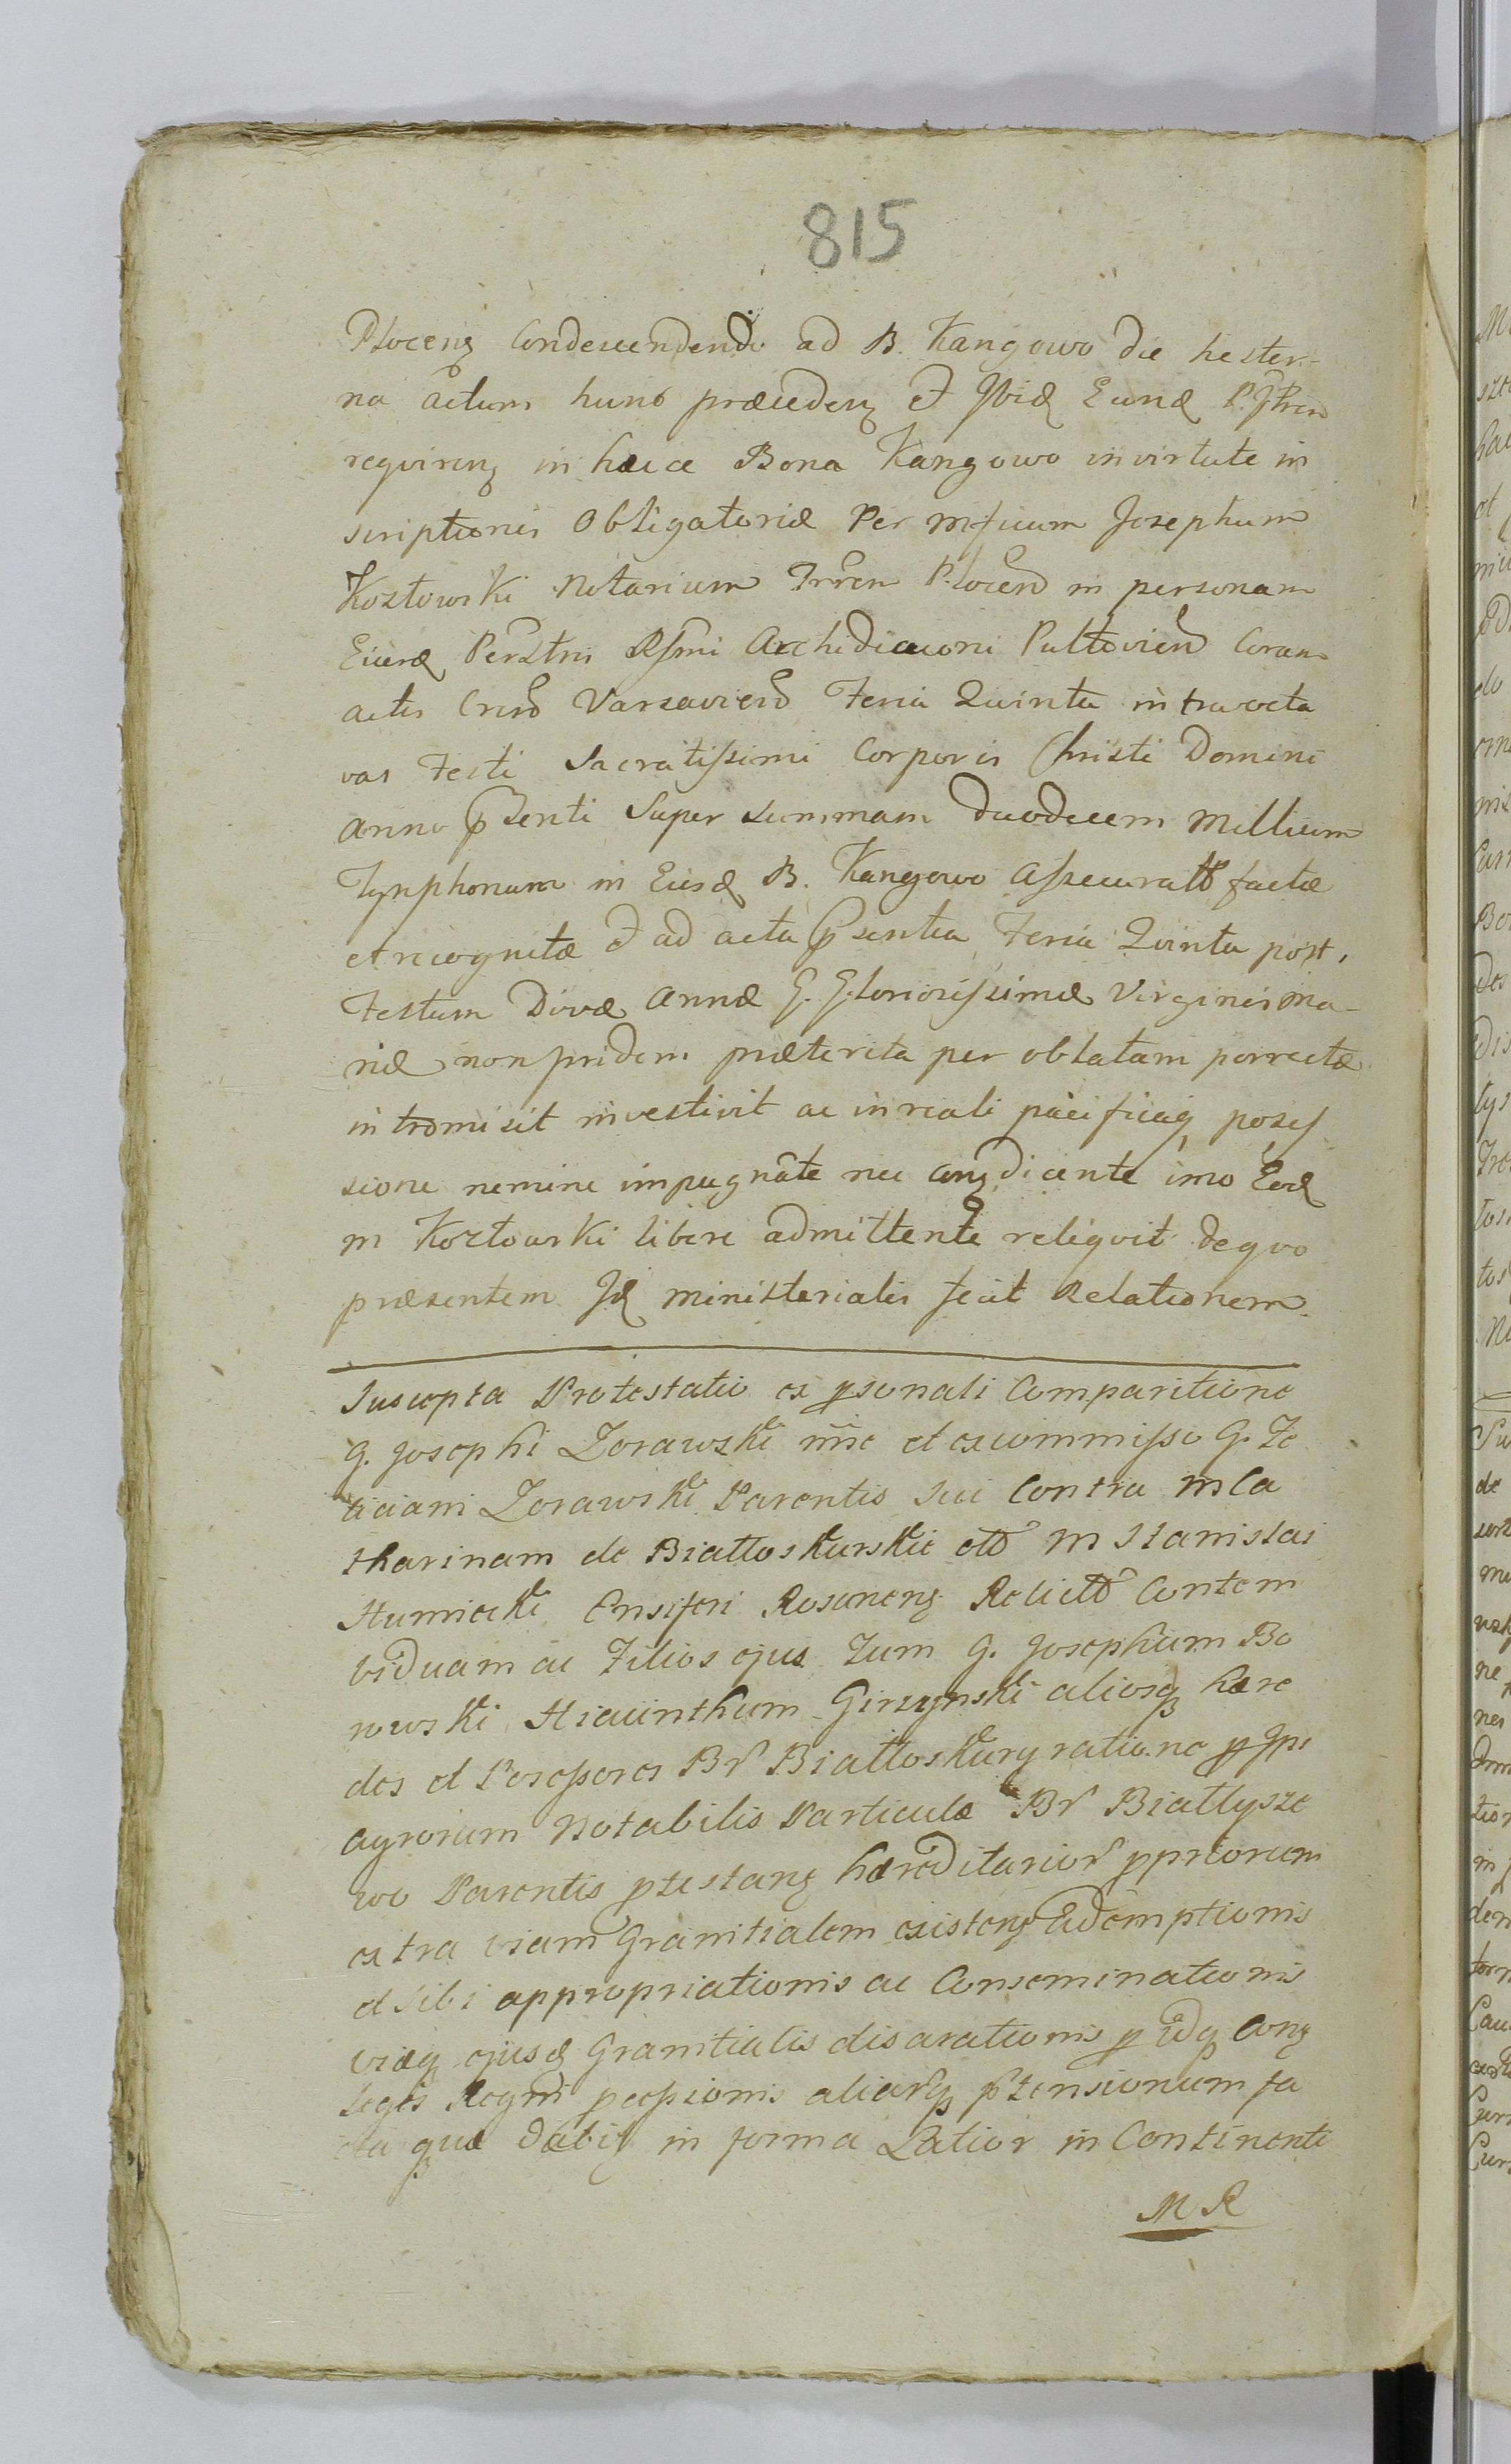 815
Ploceng Condescendendo ad B. Kangowo die hester-
na actum hunc præceden et Ibid Eund
requiren in hæce Bona Kangowo in virtute in
scriptionis Obligatoriæ Per mficum Josephum
Kozłowski Notarium Trren Plocen in personam
Eiusd Perstris Rssmi Archidiaconi Pultovien Coram
actis Cren Varsavien Feria Quinta intra octa
vas Festi Sacratissimi Corporis Christi Domini
anno psenti Super Summam duodecem Millium
Tynphonum in Eisd B. Kangowo assecurat factæ
et recognitæ et ad acta psentia Feria Quinta post
Festum Divæ Annæ G. Gloriosissimæ Virginis Ma-
riæ non pridem præterita per oblatam porrectæ
intromisit investivit ac in reali pacificaq posses
sione nemine impugnāte nec cong dicente imo Eod
m Kozłowski libere admittente reliqvit deqvo
præsentem Id ministerialis fecit Relationem.
Suscepta Protestatio ex psonali Comparitione
G. Josephi Zorawski nīe et ex commisso G. Fe
liciani Zorawski Parentis sui Contra M Ca
tharinam de Białłoskurskie ol M Stanislai
Humiecki Ensiferi Rosaneng Relict Contem
viduam ac Filios ejus Tum G. Josephum Bo
nowski Hiacinthum Girzynski aliosq hære
des et Possessores Br Białłoskury ratione p Ips
agrorum Notabilis Particulæ Br Białłysze
wo Parentis ptestang hæreditarior ppriorum
extra viam Granitialem existeng Ademptionis
et sibi appropriationis ac Conseminationis
viæq ejusd Granitialis disarationis p idq Cong
Leges Regni pecssionis aliarq ptensionum fa
cta quæ dabit in forma Latior in Continenti
MR